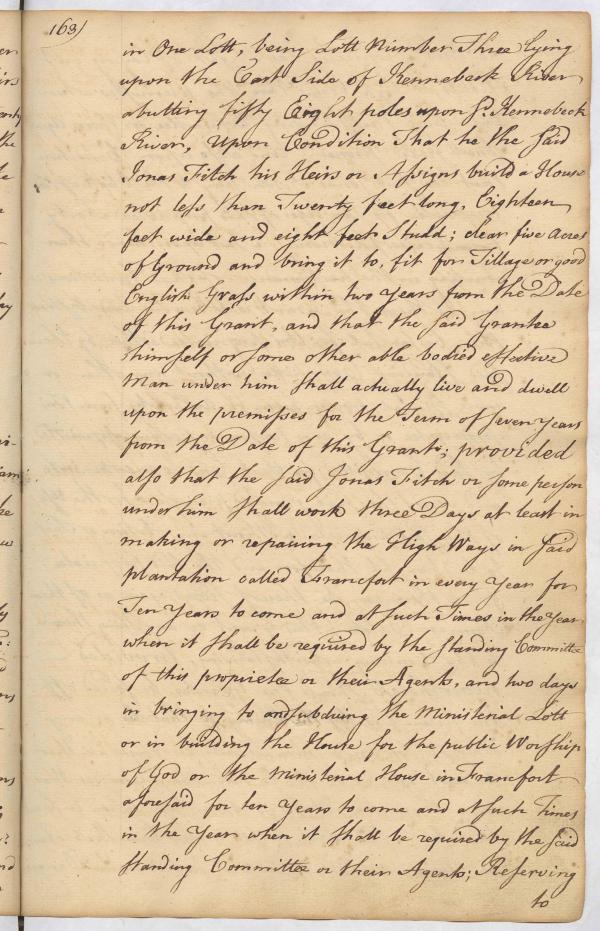 163)
in One Lott, being Lott Number Three lying
upon the East Side of Kennebeck River
abutting fifty Eight poles upon sd. Kennebeck
River, upon Condition That he the said
Jonas Fitch his Heirs or Assigns build a House
not less than Twenty feet long, Eighteen
feet wide and eight feet Studd; clear five acres
of Ground and bring it to, fit for Tillage or good
English Grass within two years from the Date
of this Grant, and that the said Grantee
himself or some other able bodied effective
Man under him shall actually live and dwell
upon the premisses for the Term of seven years
from the Date of this Grant; provided
also that the said Jonas Fitch or some person
under him shall work three Days at least in
making or repairing the High Ways in said
plantation called Francfort in every year for
Ten years to come and at such Times in the year
when it shall be required by the standing Committee
of this propriete or their Agents, and two days
in bringing to and subduing the Ministerial Lott
or in building the House for the public Worship
of God or the Ministerial House in Francfort
aforesaid for ten years to come and at such Times
in the year when it shall be required by the said
standing Committee or their Agents; Reserving
to